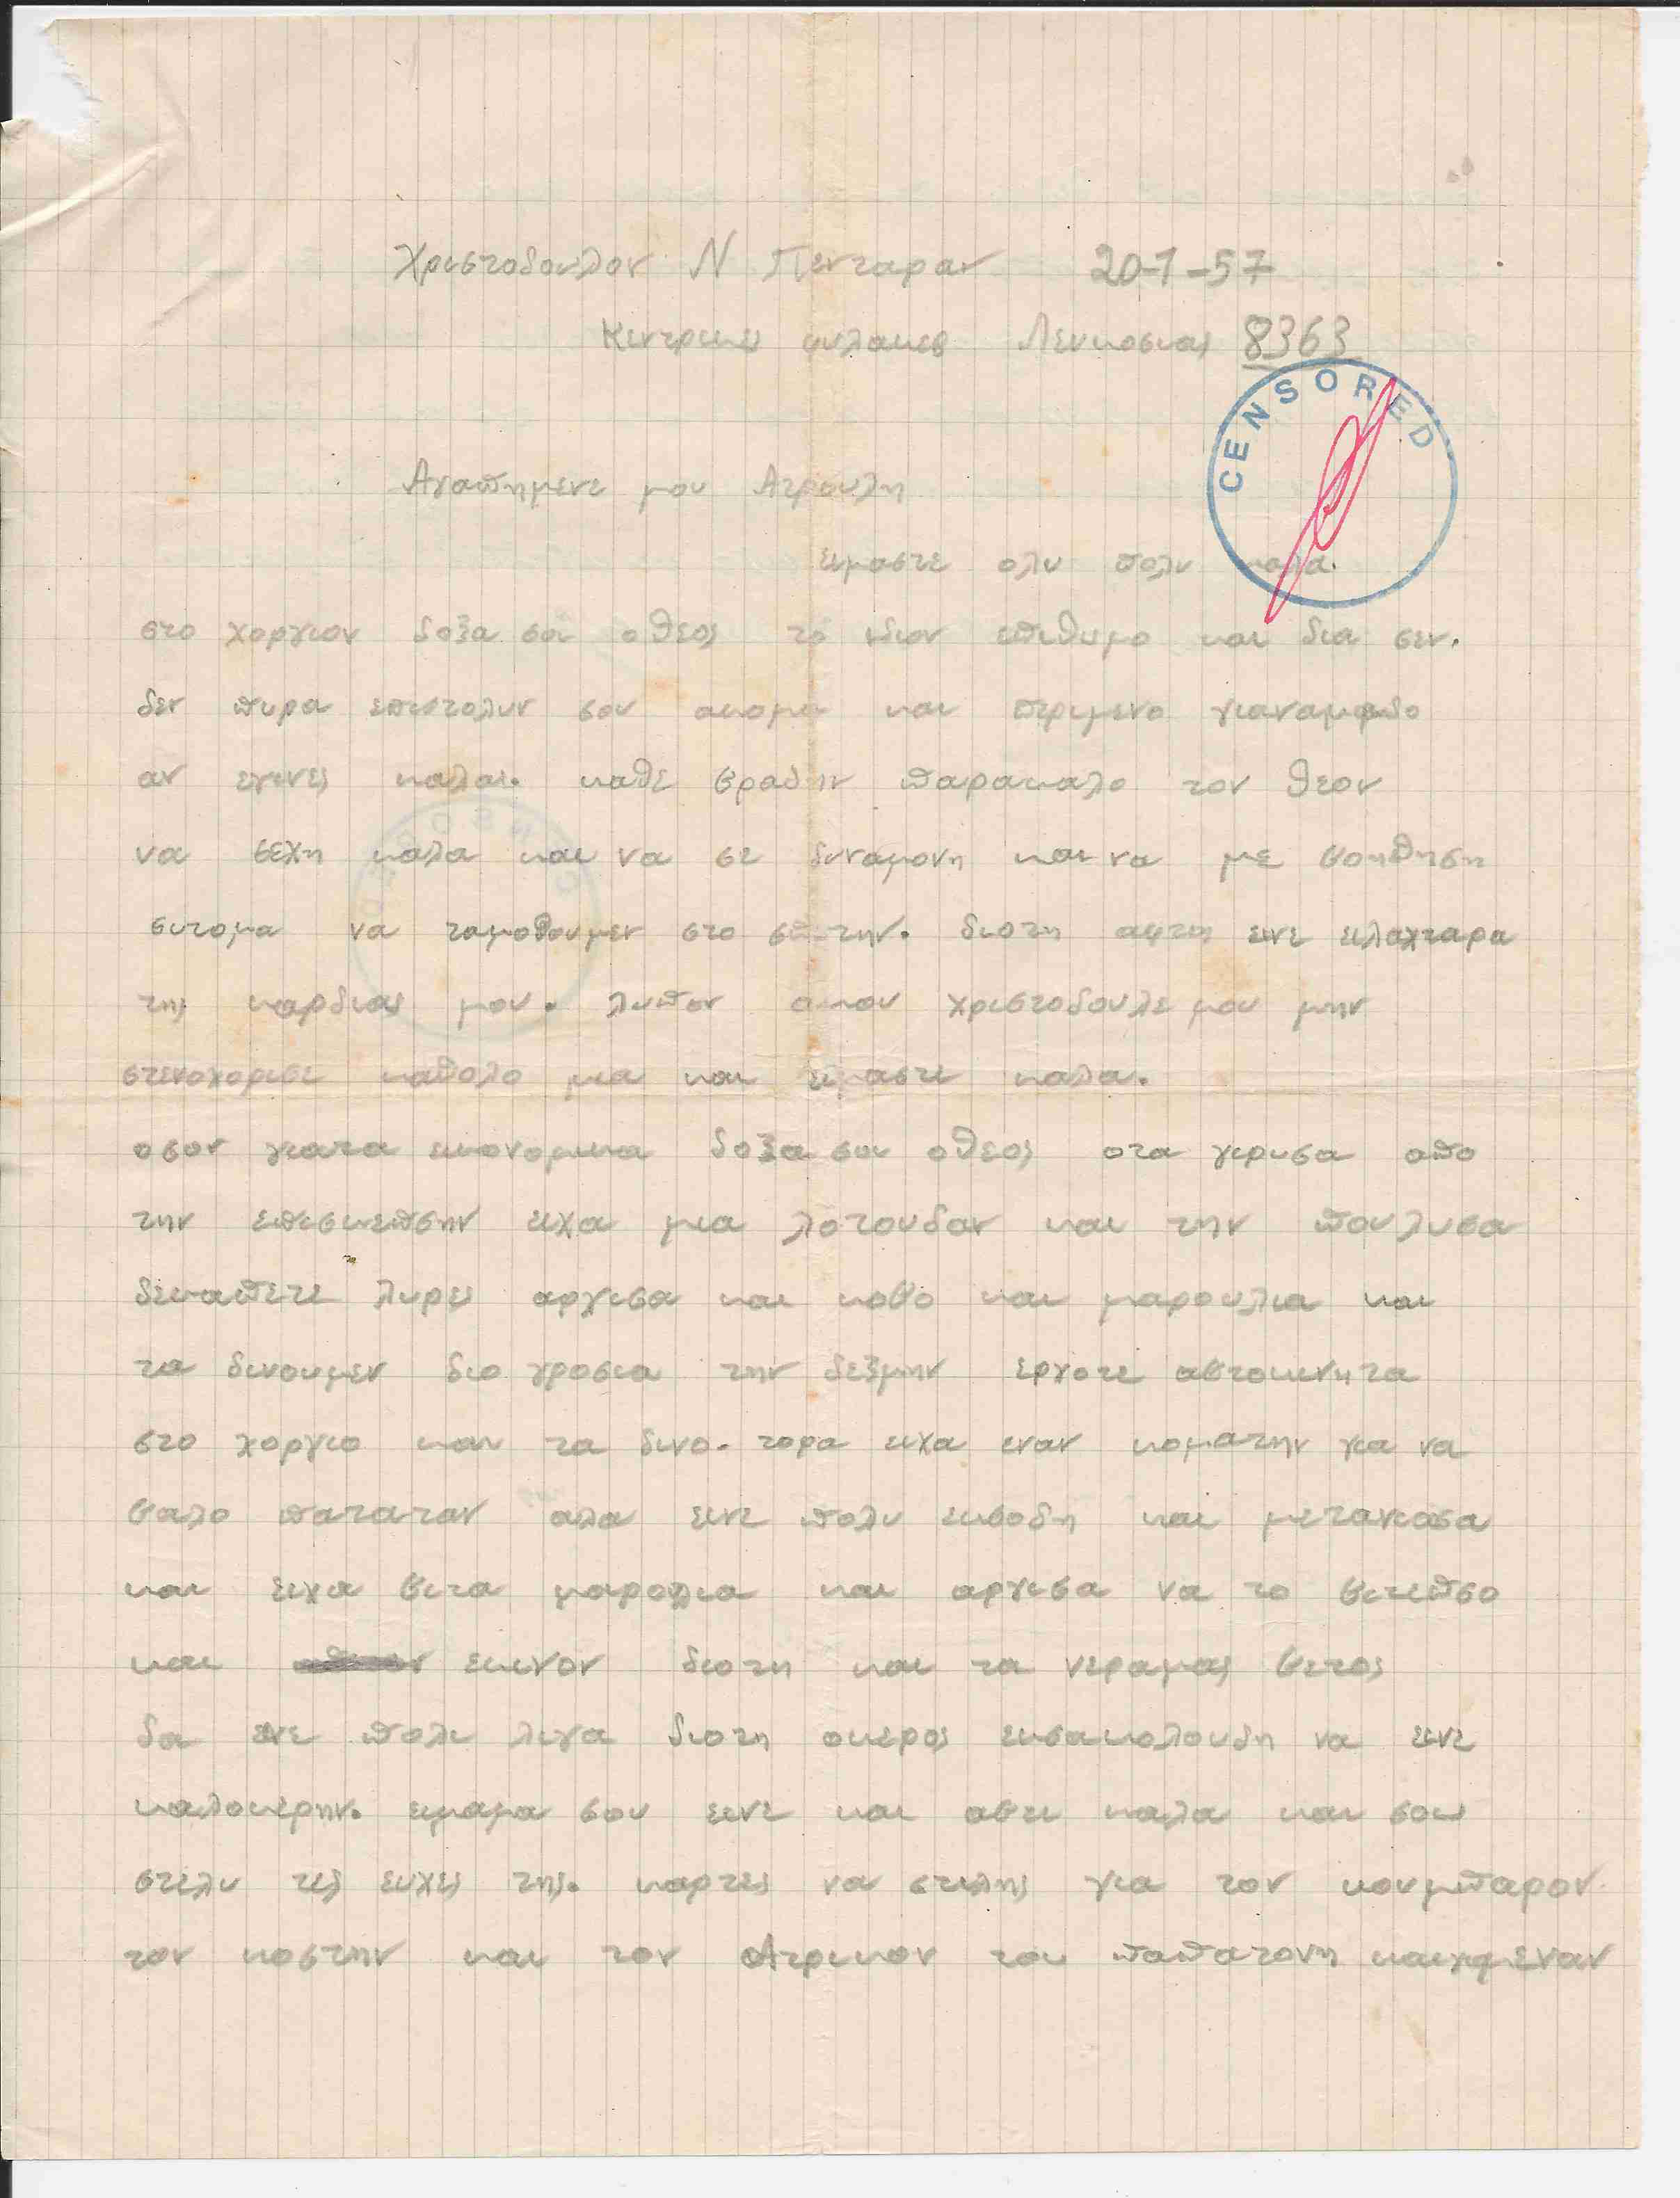 Χριστοδουλον Ν Πενταραν 20-1-57
Κεντρικες φυλακες Λευκοσιας 8363
CENSORED
Αγαπημενε μου Ατρουλη
ειμαστε ολυ πολυ καλα.
στο χοργιον δοξα σοι οθεος το ιδιον επιθυμο και δια σεν.
δεν πυρα επιστολυν σου ακομα και περιμενο γιαναμαθο
αν εγινες καλαι. καθε βραδην παρακαλο τον θεον
να σεχη καλα και να σε δυναμονη και να με βοηθηση
συτομα να ταμοθουμεν στο σπιτην. διοτη αφτη εινε ιλαχταρα
της καρδιας μου. λυπον χριστοδουλε μου μην
στενοχορισε καθολο μια και ειμαστε καλα.
οσον γιατα ικονομικα δοξα σοι οθεος οτα γιρυσα απο
την επισκεπσην ειχα μια λοτουδαν και την πουλυσα
δεκαπετε λυρες αργισα και κοβο και μαρουλια και
τα δινουμεν διο γροσια την δεξμην εργοτε αβτοκινητα
στο χοργιο και τα δινο. τορα ειχα εναν κοματην για να
βαλο παταταν αλα εινε πολυ εκσοδη και μετανιασα
και ειχα βετα μαρολια και αργισα να το βετεπσο
και εκινον διοτη και τα νεραμας βετος
δα εινε πολυ λιγα διοτη οκερος εκσακολουδη να εινε
καλοκερην. ειμαμα σου εινε και αβτι καλα και σου
στελυ τες ευχες της. καρτες να στιλης για τον κουμπαρον
τον κοστην και τον Ατρικον του παπατονη και εναν